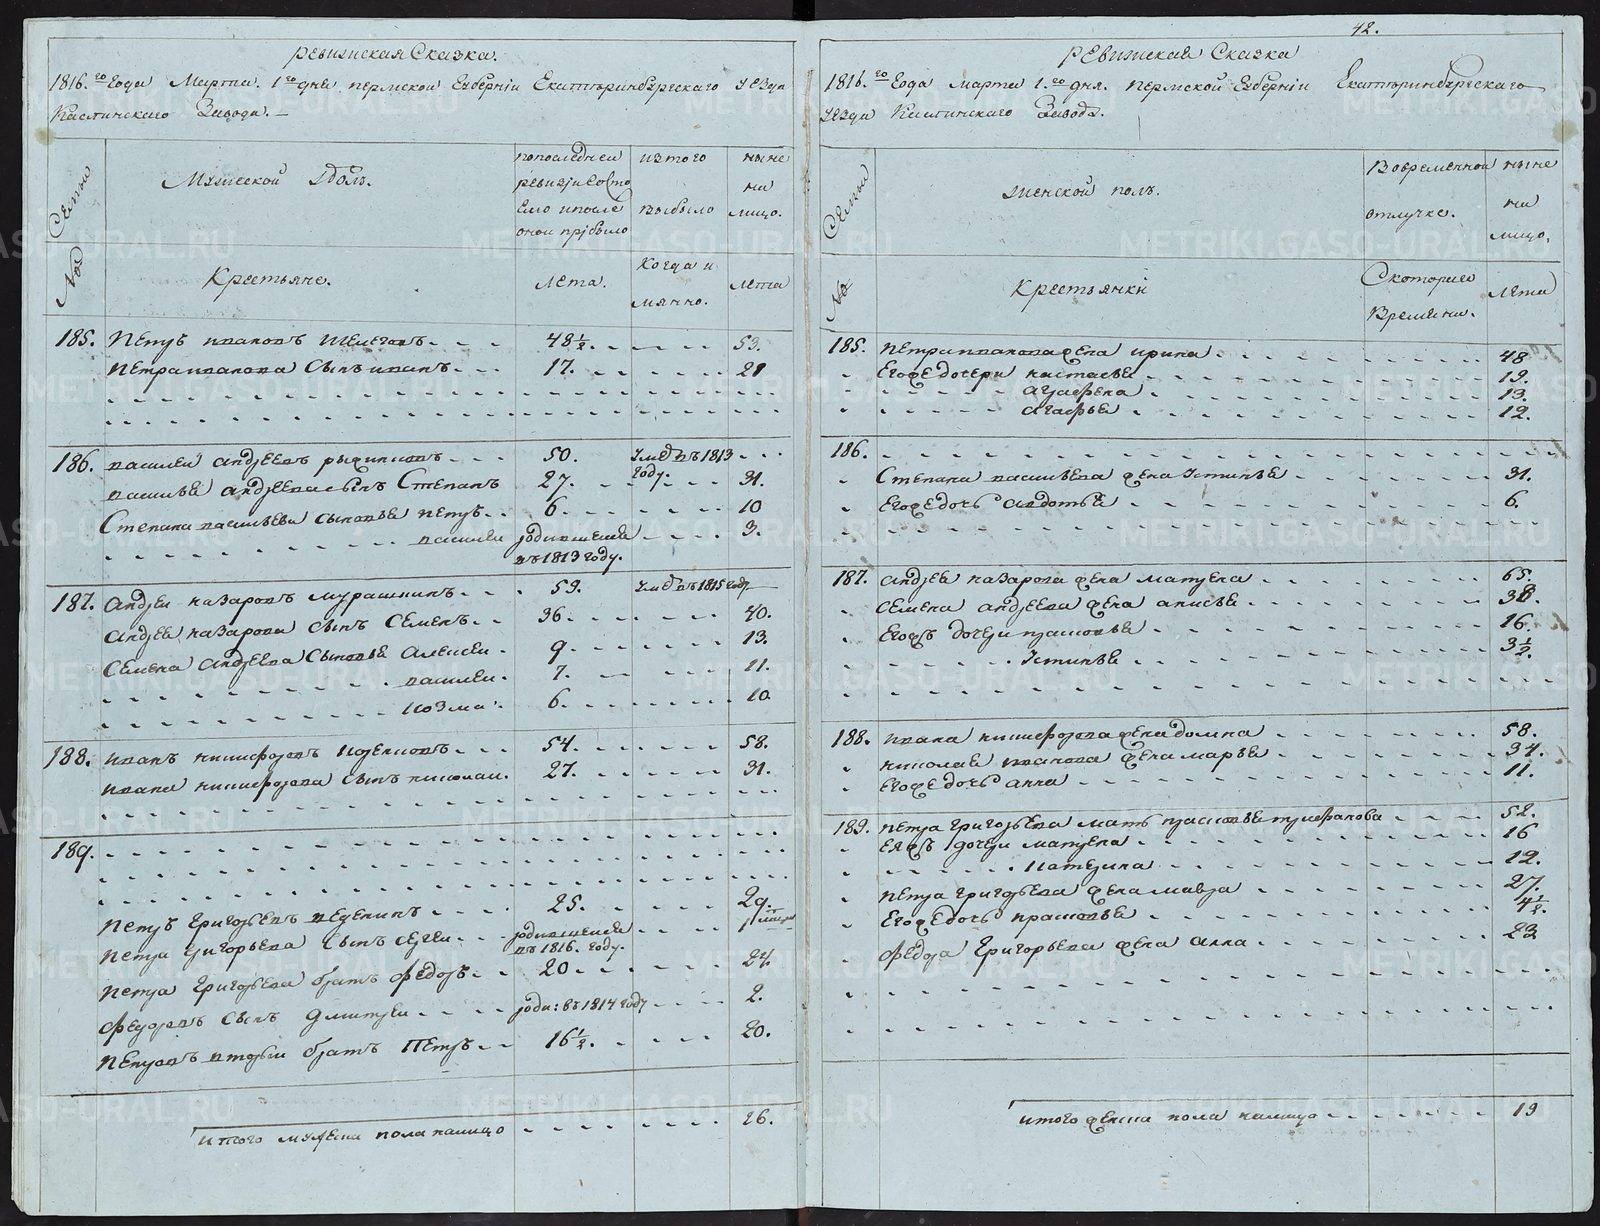 Ревижская Сказка.
1816.го Года Марта 1го дня пермской Губернiи Екатеринбургского Уезда
Каслинского Завода. –
Семьи
Мужеской полъ.
попоследней
ревизiи состо
яло ипосле
оной прибыло
изтого
выбыло
ныне
на
лицо.
№
Крестьяне.
Лета.
Когда и
мянно.
лета
185. Петръ ивановъ 48½. 53.
Петра иванова сынъ иванъ 17. 21
186. василей андреевъ 50. Умре въ 1813 году.
василья андреева сынъ Степанъ 27. 31.
Степана васильева сыновья петръ 6. 10
василей родившейся въ 1813 году. 3.
187. андрей назаровъ мурашкинъ 59. Умре въ 1815 году
андрея назарова сынъ Семенъ 36. 40.
Семена андреева сыновья алексей 9. 13.
василей 7. 11.
козма 6. 10.
188. иванъ никифоровъ 54. 58.
ивана никифорова сынъ николай 27. 31.
189.
Петръ григорьевъ 25. 29.
петра григорьева сынъ сергей родившейся въ 1816. году.
петра григорьева братъ федоръ 20 24.
федоровъ сынъ дмитрей роди: въ 1814 году 2.
петровъ вторый братъ Петръ 16½. 20.
итого мужеска пола налицо 16.
42.
Ревижская Сказка
1816.го Года марта 1.го дня. пермской Губернiи Екатеринбургского
Уезда Каслинского Завода.
Семьи
женской полъ.
Вовременной
отлучке.
ныне
на
лицо.
№
крестьянки
Скоторого
Времяни.
лета
185. петра иванова жена ирина 48
Егоже дочери настасья 19.
аграфена 13.
агафья 12.
186.
Степана васильева жена устинья 31.
Егоже дочь авдотья 6.
187. андрея назарова жена матрена 65.
Семена андреева жена анисья 38.
Егожъ дочери прасковья 16.
устинья 3½.
188. ивана никифорова жена домна 58.
николая иванова жена марья 34.
Егоже дочь анна 11.
189. петра григорьева мать прасковья трифанова 52.
Еяжъ дочери матрена 16
катерина 12.
петра григорьева жена мавра 27.
Егоже дочь прасковья 4½.
федора григорьева жена анна 23
итого женска пола налицо 19
METRIKI.GASO-URAL.RU